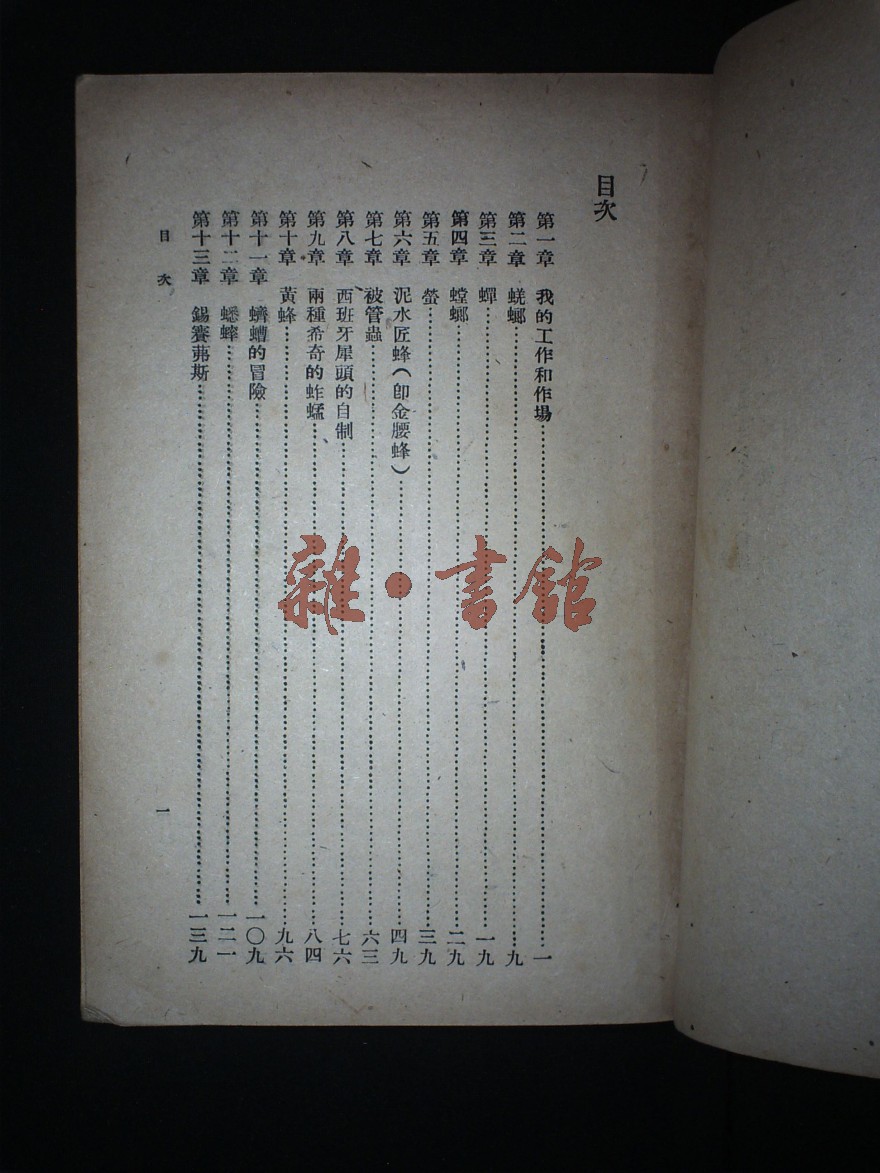 目次
第一章 我的工作和作場……一
第二章 蜣螂……九
第三章 蟬……一九
第四章 螳螂……二九
第五章 螢……三九
第六章 泥水匠蜂(卽金腰蜂)……四九
第七章 被管蟲……六三
第八章 西班牙犀頭的自制……七六
第九章 兩種希奇的蚱蜢……八四
第十章 黃蜂……九六
第十一章 蠐螬的冒險……一〇九
第十二章 蟋蟀……一二一
第十三章 錫賽弗斯……一三九
目次 一
雜·書館